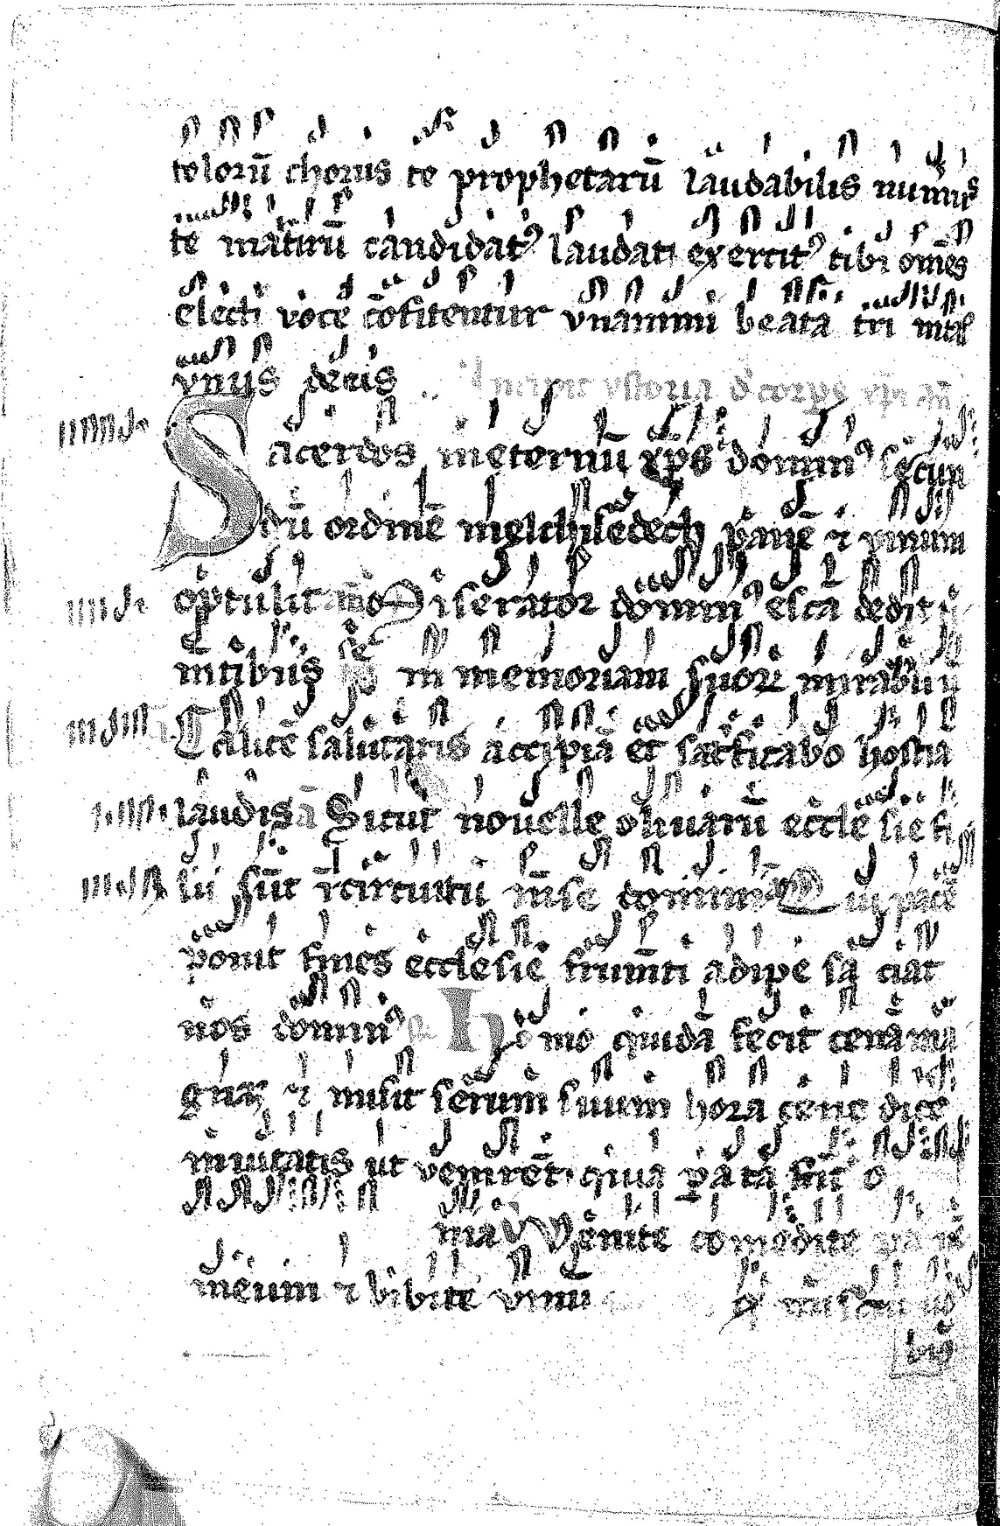 tolorū chorus te prophetarū laudabilis numerꝰ
te martirū candidatꝰ laudat exercitꝰ tibi om̄es
electi voce ꝯfitentur vnanimi beata tri nitas
vnus deus Incipit ystoria d' corpe xp̄i
Sacerdos ineternū xp̄s dominꝰ secun
dū ordinē melchisedech panē ⁊ vinum
optulit Miserator dominꝰ escā dedit
mtibus se in memoriam suorꝝ mirabiliū
Calicē salutaris accipiā et sacrificabo hostiā
laudis Sicut nouelle oliuarū ecclesie fi
lii sūt ī circuitu mense domini Qui pacē
ponit fines ecclesie frumēti adipe sa ciat
nos dominꝰ Homo quidā fecit cenā ma
gnā ⁊ misit seruum suum hora cene dice
inuitatis ut venirēt quia pa ta sūt o
nia Venite comedite panē
meum ⁊ bibite vinū q miscui uo
bis